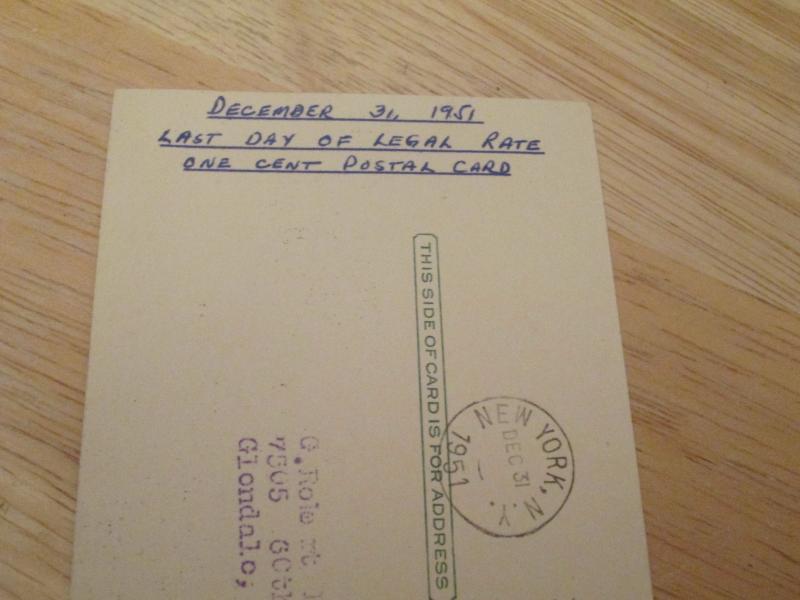 DECEMBER 31, 1951
LAST DAY OF LEGAL RATE
ONE CENT POSTAL CARD
THIS SIDE OF CARD IS FOR ADDRESS
NEW YORK, N.Y.
DEC 31
1951
G.
7505 60th
Glendale,